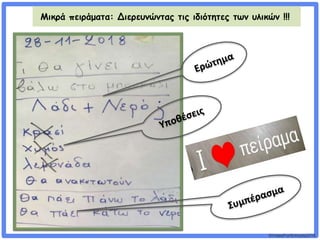 Μικρά πειράματα: Διερευνώντας τις ιδιότητες των υλικών !!!
28-11-2018
Τι θα γίνει αν
βάλω στο μπουκάλι
Λάδι + Νερό ;
Ερώτημα
Υποθέσεις
Κρασί
Χυμός
λεμονάδα
Θα ανακατευτούν
Θα πάει πάνω το λάδι
Θα πάει κάτω το νερο
I πείραμα
Συμπέρασμα